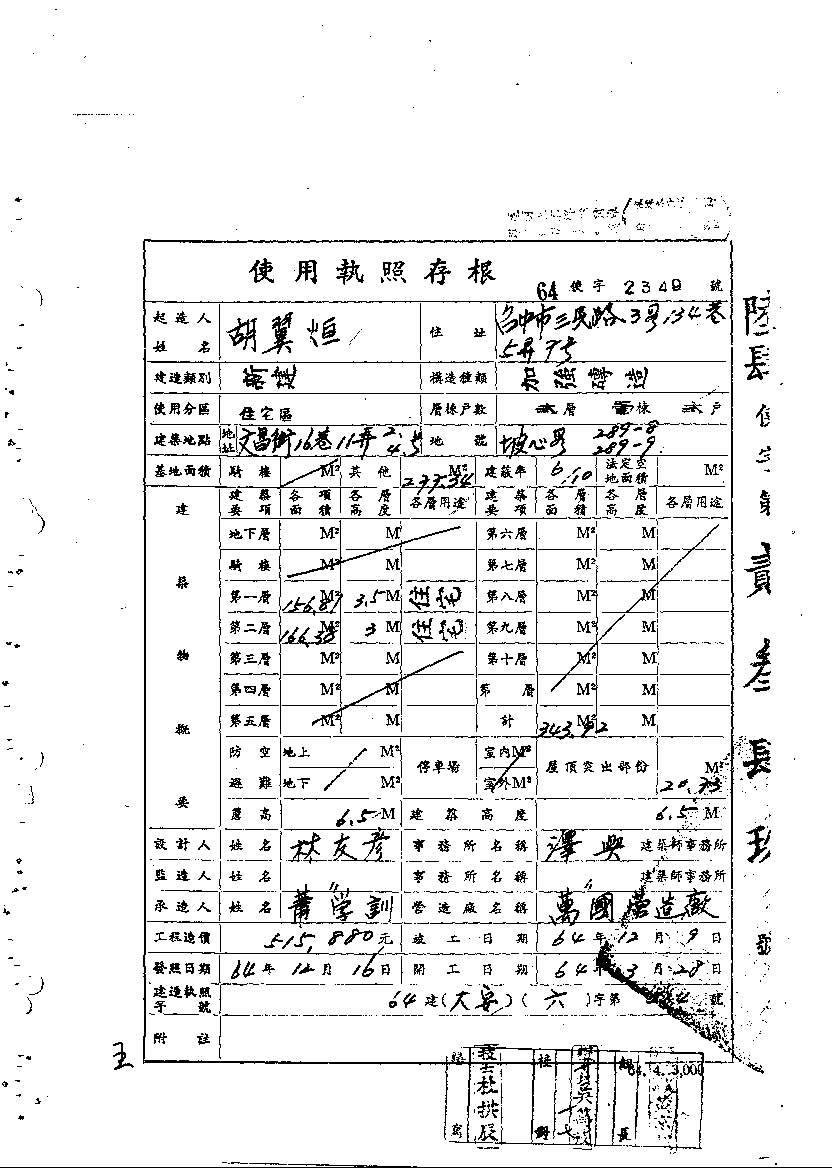 使用執照存根
64 使字 2349 號
起造人姓名 胡翼烜 住址 台中市三民路3号134巷5弄7号
建造類別 新建 構造種類 加強磚造
使用分區 住宅區 層棟戶數 層 棟 戶
建築地點 地址 文昌街16巷11弄2.4号 地號 坡心 289-8 289-9
基地面積 騎樓 M² 其他 233.34 M² 建蔽率 6/10 法定空地面積 M²
建築物概要
建築要項 各項面積 各層高度 各層用途 建築要項 各層面積 各層高度 各層用途
地下層 M² M 第六層 M² M
騎樓 M² M 第七層 M² M
第一層 156.87 M² 3.5 M 住宅 第八層 M² M
第二層 166.38 M² 3 M 住宅 第九層 M² M
第三層 M² M 第十層 M² M
第四層 M² M 第 層 M² M
第五層 M² M 計 343.92 M²
防空避難 地上 M² 地下 M² 停車場 室內 M² 室外 M² 屋頂突出部份 M²
簷高 6.5 M 建築高度 6.5 M
設計人 姓名 林友彥 事務所名稱 澤興 建築師事務所
監造人 姓名 〃 事務所名稱 〃 建築師事務所
承造人 姓名 學訓 營造廠名稱 萬國營造廠
工程造價 515,880元 竣工日期 64年12月9日
發照日期 64年12月16日 開工日期 64年3月28日
建造執照字號 64建(大安)(六)字第 號
附註
王
64.4.3,000
技士杜拱辰
組長
陸肆使字第貳叁肆玖號